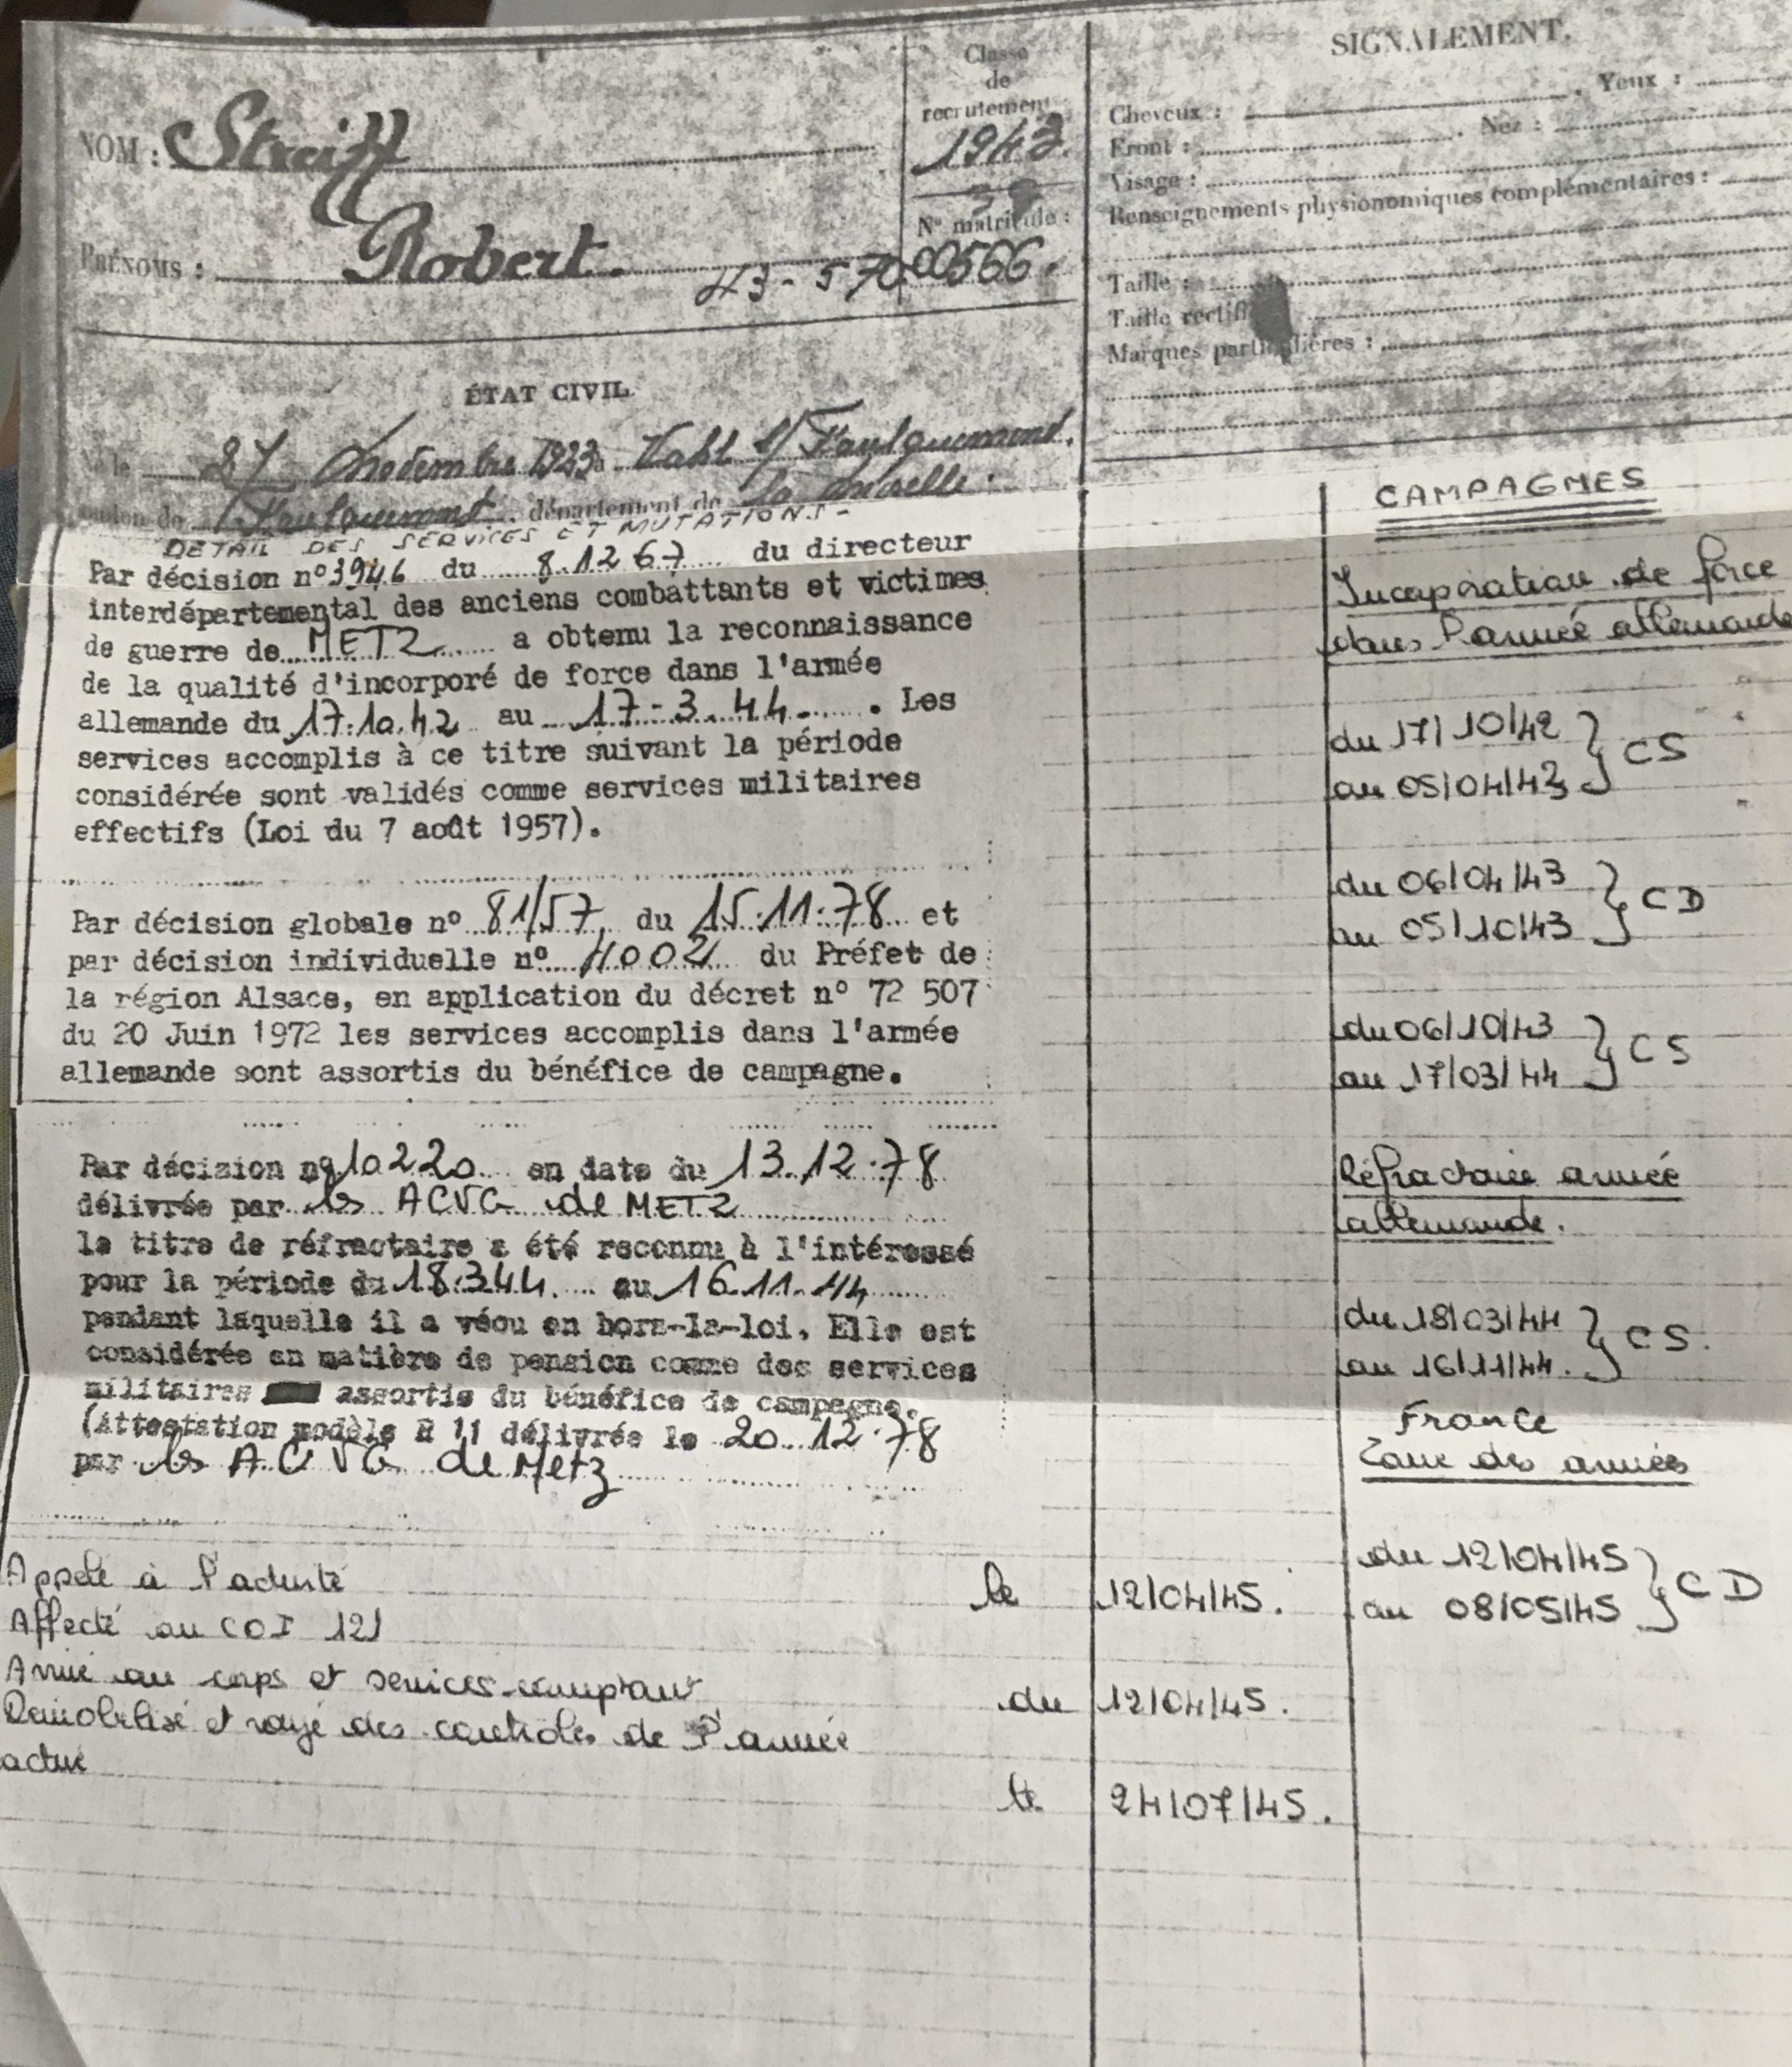 NOM : Streiff
PRÉNOMS : Robert.
43-570
Classe
de
recrutement
1943.
N° matricule :
00566.
SIGNALEMENT.
Cheveux : Yeux :
Front : Nez :
Visage :
Renseignements physionomiques complémentaires :
Taille :
Taille rectifi
Marques particulières :
ÉTAT CIVIL
Né le 27 Novembre 1923 à Vahl s/ Faulquemont.
canton de Faulquemont, département de la Moselle.
DETAIL DES SERVICES ET MUTATIONS-
Par décision n° 3946 du 8.12 67 du directeur
interdépartemental des anciens combattants et victimes
de guerre de METZ a obtenu la reconnaissance
de la qualité d'incorporé de force dans l'armée
allemande du 17.10.42 au 17-3.44. Les
services accomplis à ce titre suivant la période
considérée sont validés comme services militaires
effectifs (Loi du 7 août 1957).
Par décision globale n° 81/57 du 15.11.78 et
par décision individuelle n° 4002 du Préfet de
la région Alsace, en application du décret n° 72 507
du 20 Juin 1972 les services accomplis dans l'armée
allemande sont assortis du bénéfice de campagne.
Par décision n° 10220 en date du 13.12.78
délivrée par les ACVG de METZ
le titre de réfractaire a été reconnu à l'intéressé
pour la période du 18.3.44. au 16.11.44
pendant laquelle il a vécu en hors-la-loi. Elle est
considérée en matière de pension comme des services
militaires assortis du bénéfice de campagne.
(Attestation modèle 11 délivrée le 20.12.78
par les ACVG de Metz
Appelé à l'activité le 12/04/45.
Affecté au COI 121
Arrivé au corps et services comptant du 12/04/45.
Démobilisé et rayé des contrôles de l'armée
active le 24/07/45.
CAMPAGNES
Incorporation de force
dans l'armée allemande
du 17/10/42
au 05/04/43 } CS
du 06/04/43
au 05/10/43 } CD
du 06/10/43
au 17/03/44 } CS
Réfractaire armée
allemande.
du 18/03/44
au 16/11/44. } CS.
France
Zone des armées
du 12/04/45
au 08/05/45 } CD